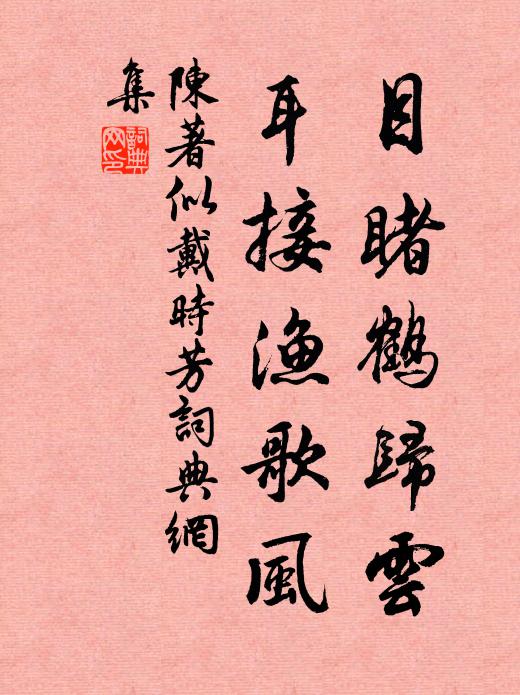 目睹鶴歸雲
耳接漁歌風
陳著似戴時芳詞典網
集
詞典
网印